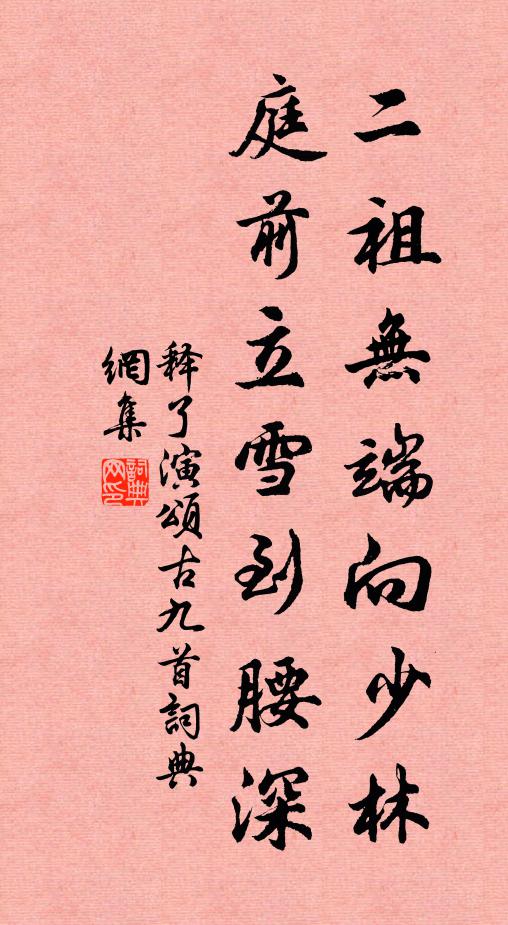 二祖無端向少林
庭前立雪到腰深
释了演頌古九首詞典
網集
詞典网印